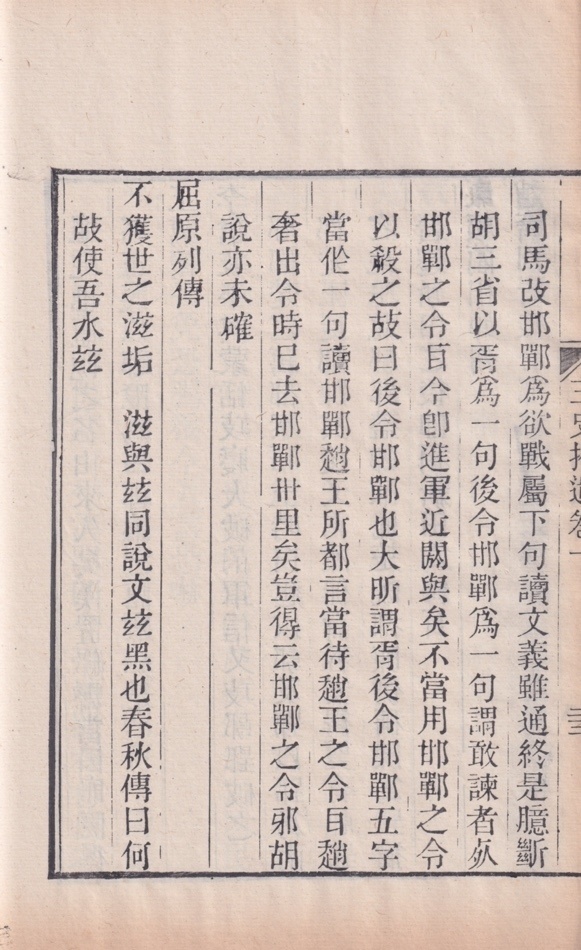 三史拾遺卷一
司馬改邯鄲爲欲戰屬下句讀文義雖通終是臆斷
胡三省以胥爲一句後令邯鄲爲一句謂敢諫者死
邯鄲之令且今卽進軍近閼與矣不當用邯鄲之令
以殺之故曰後令邯鄲也大昕謂胥後令邯鄲五字
當作一句讀邯鄲趙王所都言當待趙王之令且趙
奢出令時已去邯鄲卅里矣豈得云邯鄲之令邪胡
說亦未確
屈原列傳
不獲世之滋垢 滋與玆同說文玆黑也春秋傳曰何
故使吾水玆